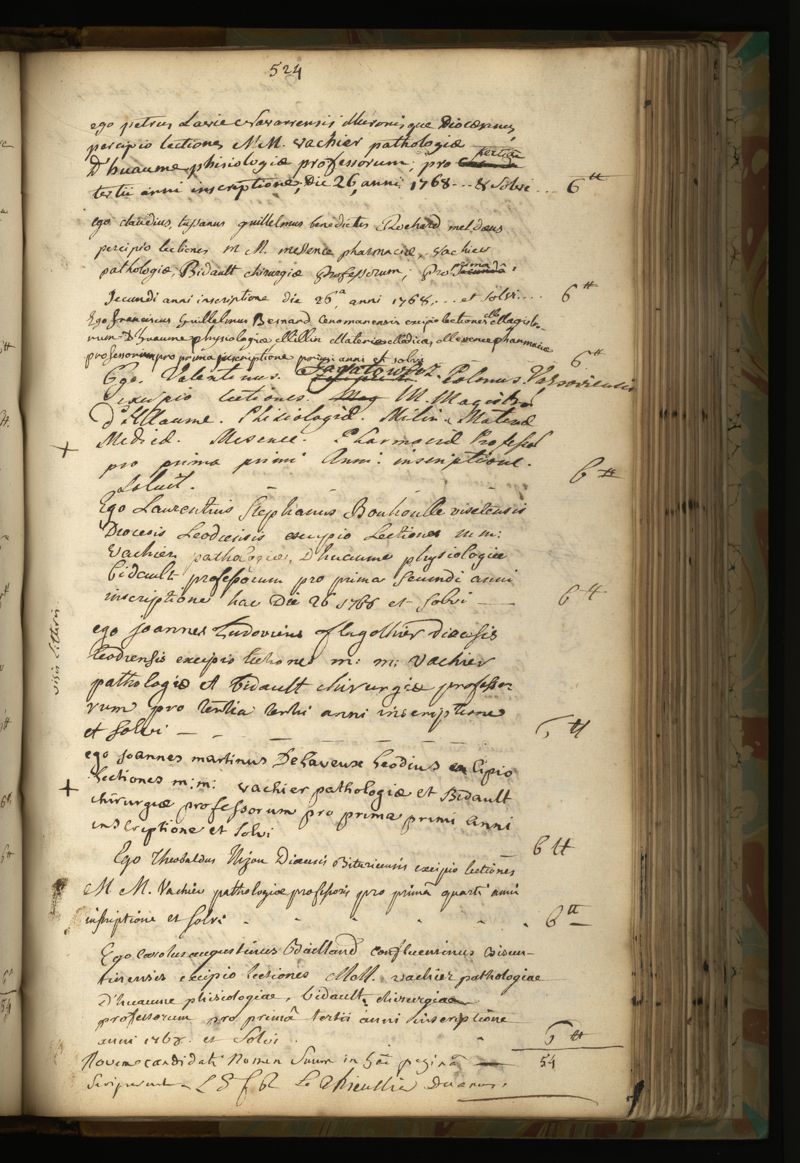 524
ego petrus Lavie Navarrensis diocesanus,
percipio lectiones M.M. vachier pathologiæ
D'huaume phisiologiæ professorum; pro tertiâ
tertii anni inscriptione, Die 26, anni 1768 ... & solvi ... 6 ₶
ego claudius, guillelmus benedictus Rochard meldæus
percipio lectiones m M. mesence pharmaciæ, vachier
pathologiæ, Bidault chirurgiæ professorum; pro prima
secundi anni inscriptione die 26.a anni 1768, ... et solvi .... 6 ₶
Ego franciscus Guillelmus Besnard Cenomanensis excipio lectiones magistro-
rum D'huaume physiologiæ Millin Materiæ Medicæ, Mesence pharmaciæ
professorum pro prima inscriptione primi anni et solvi 6 ₶
Ego. Valentinus. Polonus. Varsoviensis
excipio lectiones. M. Magistro
d'Huaume. Phisiologiæ. Milin. Materiæ
Medicæ. Mesence. Pharmaciæ Professor
pro prima primi Anni. inscriptione.
Soluit. 6 ₶
Ego Laurentius Stephanus Bouhoulle visetensis
Diocesis Leodiensis excipio Lectiones m m:
Vachier pathologiæ, D'huaume physiologiæ
bidault professorum pro prima secundi anni
inscriptione hac Die 26 1768 et solvi — 6 ₶
ego joannes Ludovicus diocesis
leodiensis excipio lectiones m: m: vachier
pathologiæ et bidault chirurgiæ professo-
rum pro tertia tertii anni inscriptione
et solvi — 6 ₶
ego joannes martinus Delaveux Leodius excipio
Lectiones m: m: vachier pathologiæ et Bidault
chirurgiæ professorum pro prima primi anni
inscriptione et solvi 6 ₶
Ego Theobaldus Nizon Diœcesis Bituricensis excipio lectiones
M M. Vachier pathologiæ professoris pro primâ quarti anni
inscriptione et solvi 6 ₶
Ego carolus augustinus Bailland confluentinus bisun-
tinensis excipio lectiones M.M. vachier pathologiae
D'huaume phisiologiae, bidault chirurgiae
professorum pro primâ tertii anni inscriptione
anni 1768. et solvi 6 ₶
Novem candidati Nomen suum in hac paginâ 54
scripserunt Le Thieullier Decanus.
visis litteris.